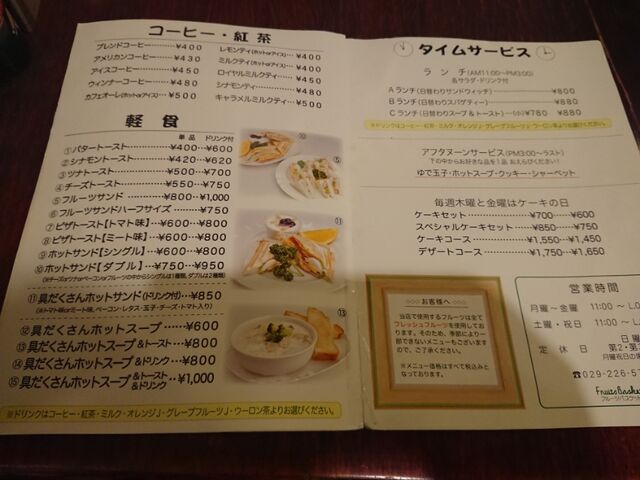 コーヒー・紅茶
ブレンドコーヒー……¥400
アメリカンコーヒー……¥430
アイスコーヒー……¥450
ウィンナーコーヒー……¥480
カフェオーレ(ホットorアイス)…¥500
レモンティ(ホットorアイス)…¥400
ミルクティ(ホットorアイス)…¥400
ロイヤルミルクティ……¥450
シナモンティ……¥480
キャラメルミルクティ……¥500
軽食
単品 ドリンク付
①バタートースト……¥400→¥600
②シナモントースト……¥420→¥620
③ツナトースト……¥500→¥700
④チーズトースト……¥550→¥750
⑤フルーツサンド……¥800→¥1,000
⑥フルーツサンドハーフサイズ……¥750
⑦ピザトースト【トマト味】…¥600→¥800
⑧ピザトースト【ミート味】…¥600→¥800
⑨ホットサンド【シングル】…¥600→¥800
⑩ホットサンド【ダブル】…¥750→¥950
※チーズorツナorベーコンorフルーツの中からシングルは1種類、ダブルは2種類)
⑪具だくさんホットサンド(ドリンク付)…¥850
(※トマト味orミート味、ベーコン・レタス・玉子・チーズ・トマト入り)
⑫具だくさんホットスープ……¥600
⑬具だくさんホットスープ&トースト…¥800
⑭具だくさんホットスープ&ドリンク…¥800
⑮具だくさんホットスープ&トースト&ドリンク…¥1,000
※ドリンクはコーヒー・紅茶・ミルク・オレンジJ・グレープフルーツJ・ウーロン茶よりお選びください。
⑩
⑤
⑪
⑬
タイムサービス
ランチ(AM11:00~PM3:00)
各サラダ・ドリンク付
Aランチ(日替わりサンドウィッチ)……¥800
Bランチ(日替わりスパゲティー)……¥880
Cランチ(日替わりスープ&トースト)…(小)¥780 ¥880
※ドリンクはコーヒー・紅茶・ミルク・オレンジJ・グレープフルーツJ・ウーロン茶よりお選びください。
アフタヌーンサービス(PM3:00~ラスト)
下の中からお好きな品を1品 おえらびください!
ゆで玉子・ホットスープ・クッキー・シャーベット
毎週木曜と金曜はケーキの日
ケーキセット……¥700→¥600
スペシャルケーキセット……¥850→¥750
ケーキコース……¥1,550→¥1,450
デザートコース……¥1,750→¥1,650
◇◇◇ お客様へ ◇◇◇
当店で使用するフルーツは全て
フレッシュフルーツを使用してお
ります。そのため、季節により一
部できないメニューもございます
ので、ご了承ください。
※メニュー価格はすべて税込みと
なっております。
営業時間
月曜~金曜 11:00~L.
土曜・祝日 11:00~L.
日曜
定休日 第2・第
月曜祝日の
☎029-226-5
Fruits Basket
フルーツバスケット